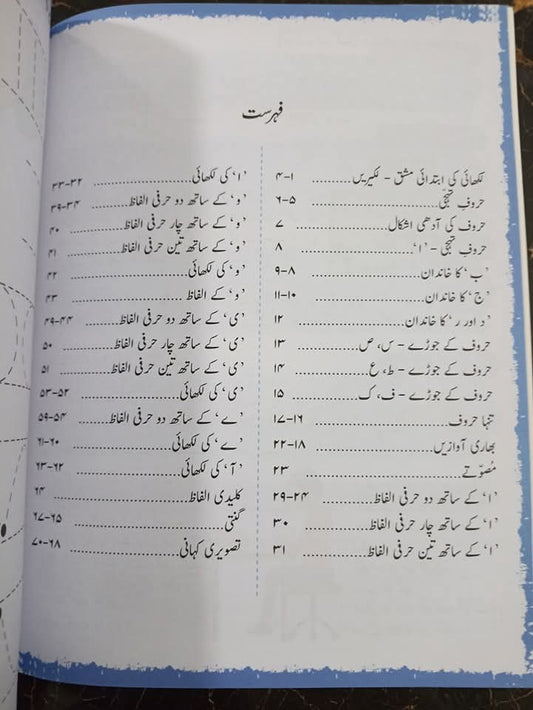 فہرست
لکھائی کی ابتدائی مشق - لکیریں ......... ۱-۴
حروفِ تہجّی ......... ۵-۶
حروف کی آدھی اشکال ......... ۷
حروفِ تہجّی - ’ا‘ ......... ۸
’ب‘ کا خاندان ......... ۸-۹
’ج‘ کا خاندان ......... ۱۰-۱۱
’د اور ر‘ کا خاندان ......... ۱۲
حروف کے جوڑے - س، ص ......... ۱۳
حروف کے جوڑے - ط، ع ......... ۱۴
حروف کے جوڑے - ف، ک ......... ۱۵
تنہا حروف ......... ۱۶-۱۷
بھاری آوازیں ......... ۱۸-۲۲
مُصوّتے ......... ۲۳
’ا‘ کے ساتھ دو حرفی الفاظ ......... ۲۴-۲۹
’ا‘ کے ساتھ چار حرفی الفاظ ......... ۳۰
’ا‘ کے ساتھ تین حرفی الفاظ ......... ۳۱
’ا‘ کی لکھائی ......... ۳۲-۳۳
’و‘ کے ساتھ دو حرفی الفاظ ......... ۳۴-۳۹
’و‘ کے ساتھ چار حرفی الفاظ ......... ۴۰
’و‘ کے ساتھ تین حرفی الفاظ ......... ۴۱
’و‘ کی لکھائی ......... ۴۲
’و‘ کے الفاظ ......... ۴۳
’ی‘ کے ساتھ دو حرفی الفاظ ......... ۴۴-۴۹
’ی‘ کے ساتھ چار حرفی الفاظ ......... ۵۰
’ی‘ کے ساتھ تین حرفی الفاظ ......... ۵۱
’ی‘ کی لکھائی ......... ۵۲-۵۳
’ے‘ کے ساتھ دو حرفی الفاظ ......... ۵۴-۵۹
’ے‘ کی لکھائی ......... ۶۰-۶۱
’آ‘ کی لکھائی ......... ۶۲-۶۳
کلیدی الفاظ ......... ۶۴
گنتی ......... ۶۵-۶۷
تصویری کہانی ......... ۶۸-۷۰